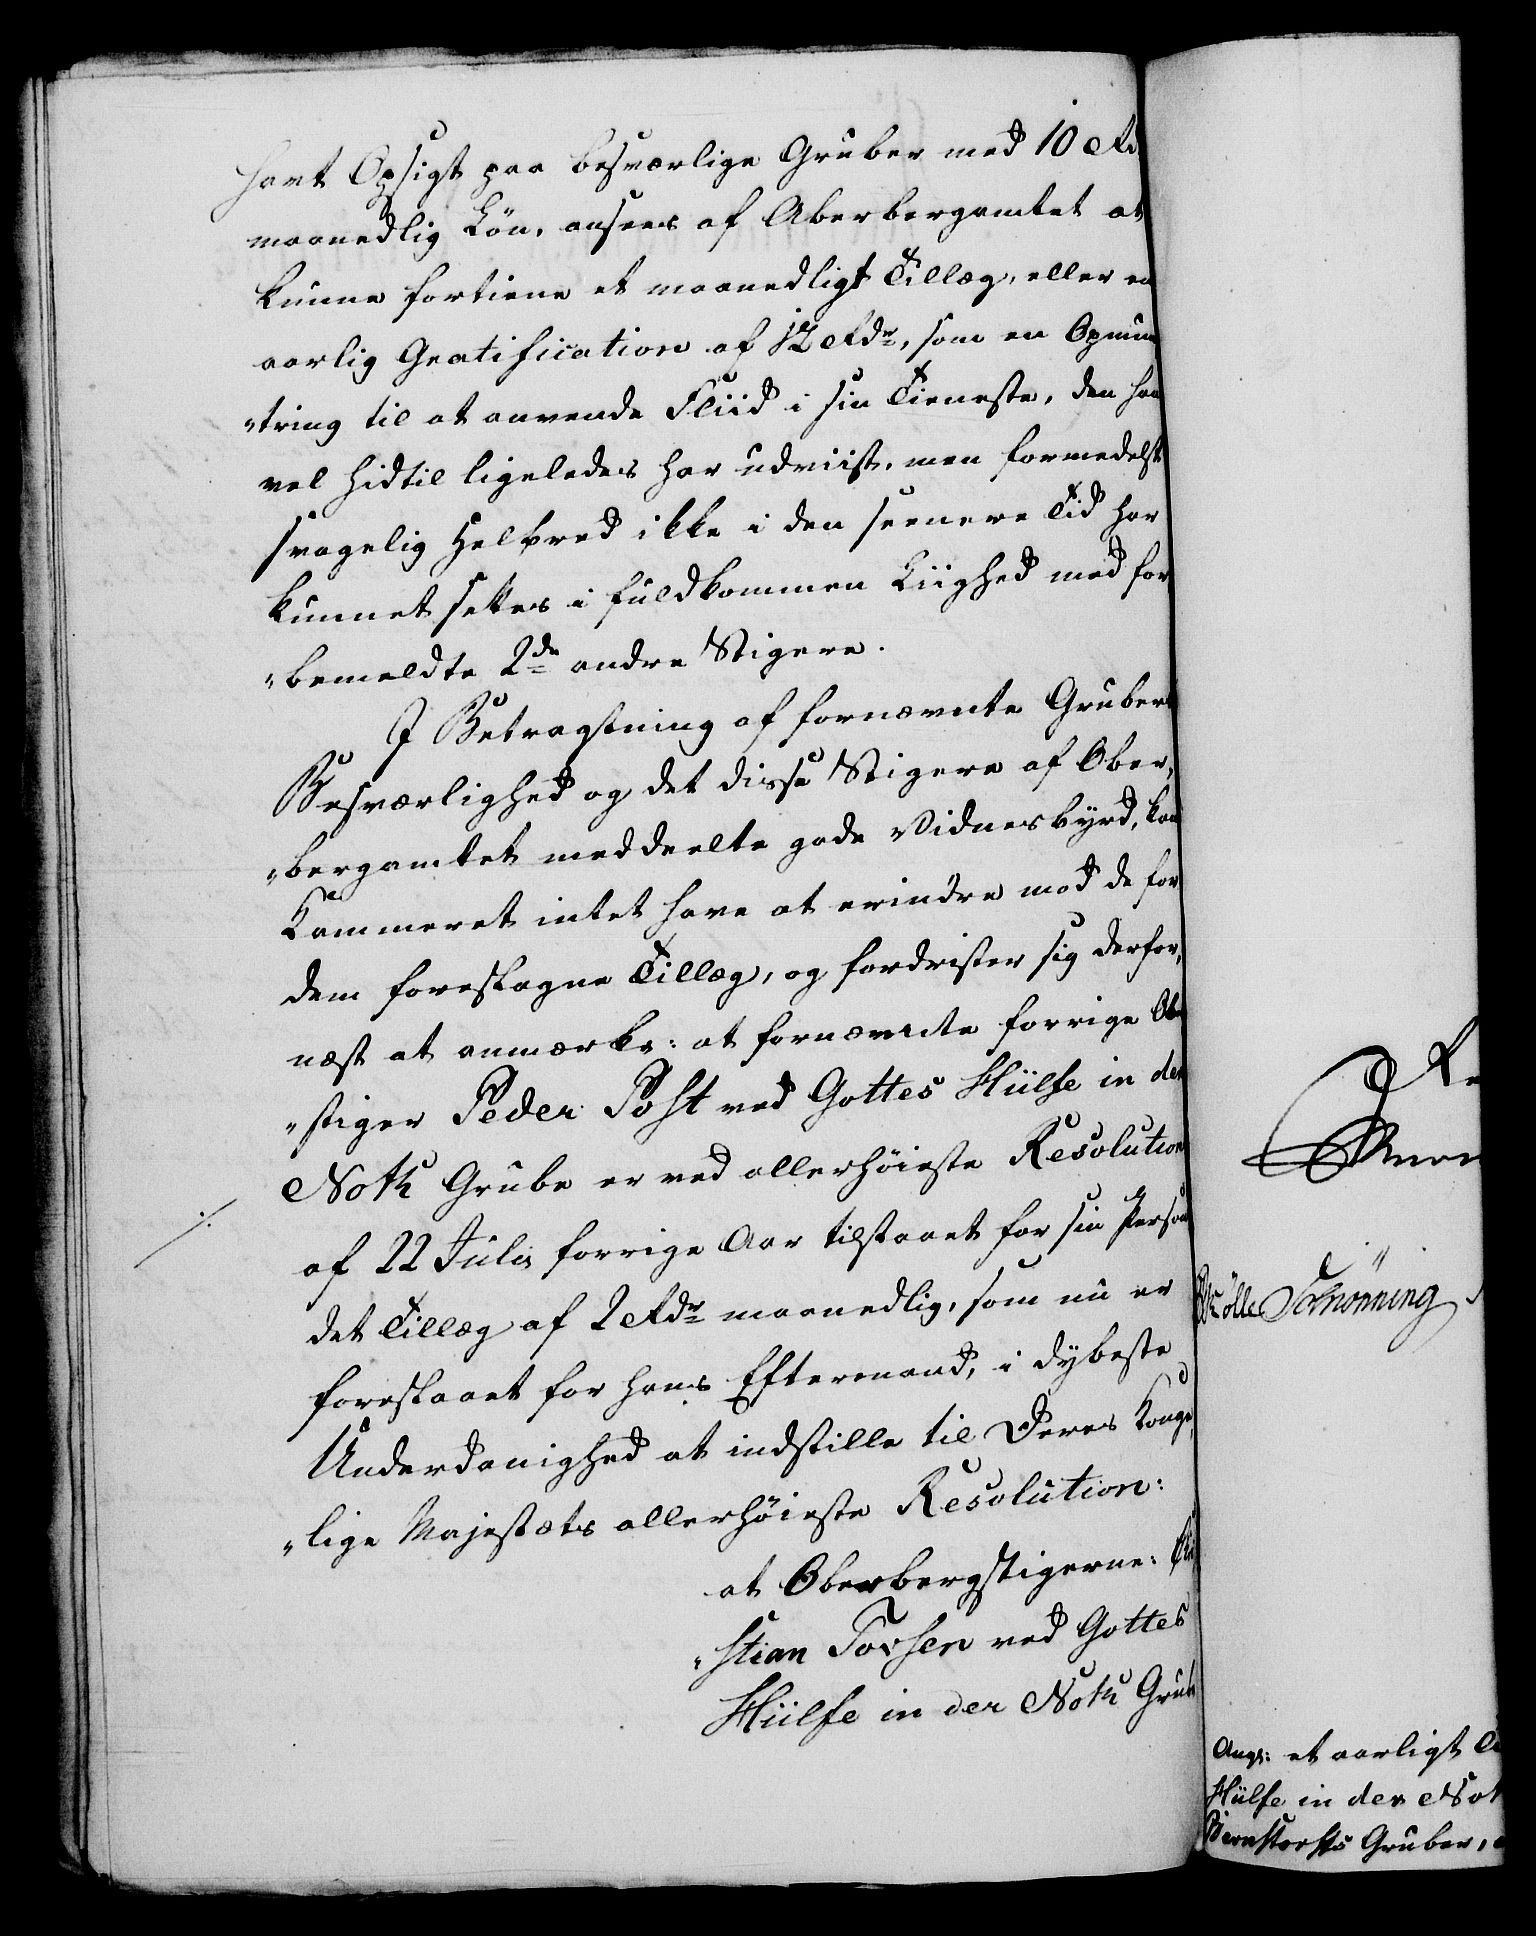 havt Opsigt paa besværlige Gruber med 10 Rd.
maanedlig Løn, ansees af Oberbergamtet at
kunne fortiene et maanedligt Tillæg, eller en
aarlig Gratification af 12 Rdr, som en Opmun
"tring til at anvende Fliid i sin Tieneste, den han
vel hidtil ligeledes har udviist, men formedelst
svagelig Helbred ikke i den seenere Tid har
kunnet settes i fuldkommen Liighed med for
"bemeldte 2de andre Stigere.
I Betragtning af fornævnte Grubers
Besværlighed og det disse Stigere af Ober,
"bergamtet meddeelte gode Vidnesbyrd, kan
Kammeret intet have at erindre mod de for
dem foreslagne Tillæg, og fordrister sig derfor,
næst at anmærke: at fornævnte forrige Obe
"stiger Peder Post ved Gottes Hülfe in der
Noth Grube er ved allerhøieste Resolution
af 22 Julii forrige Aar tilstaaet for sin Person
det Tillæg af 2 Rdr maanedlig, som nu er
foreslaaet for hans Eftermand, i dybeste
Underdanighed at indstille til Deres Konge,
"lige Majestæts allerhøieste Resolution:
at Oberbergstigerne:
"stian Torsen ved Gottes
Hülfe in der Noth Grube
Schønning
Angl: et aarligt
Hülfe in der Noth
Bernstorffs Gruber,